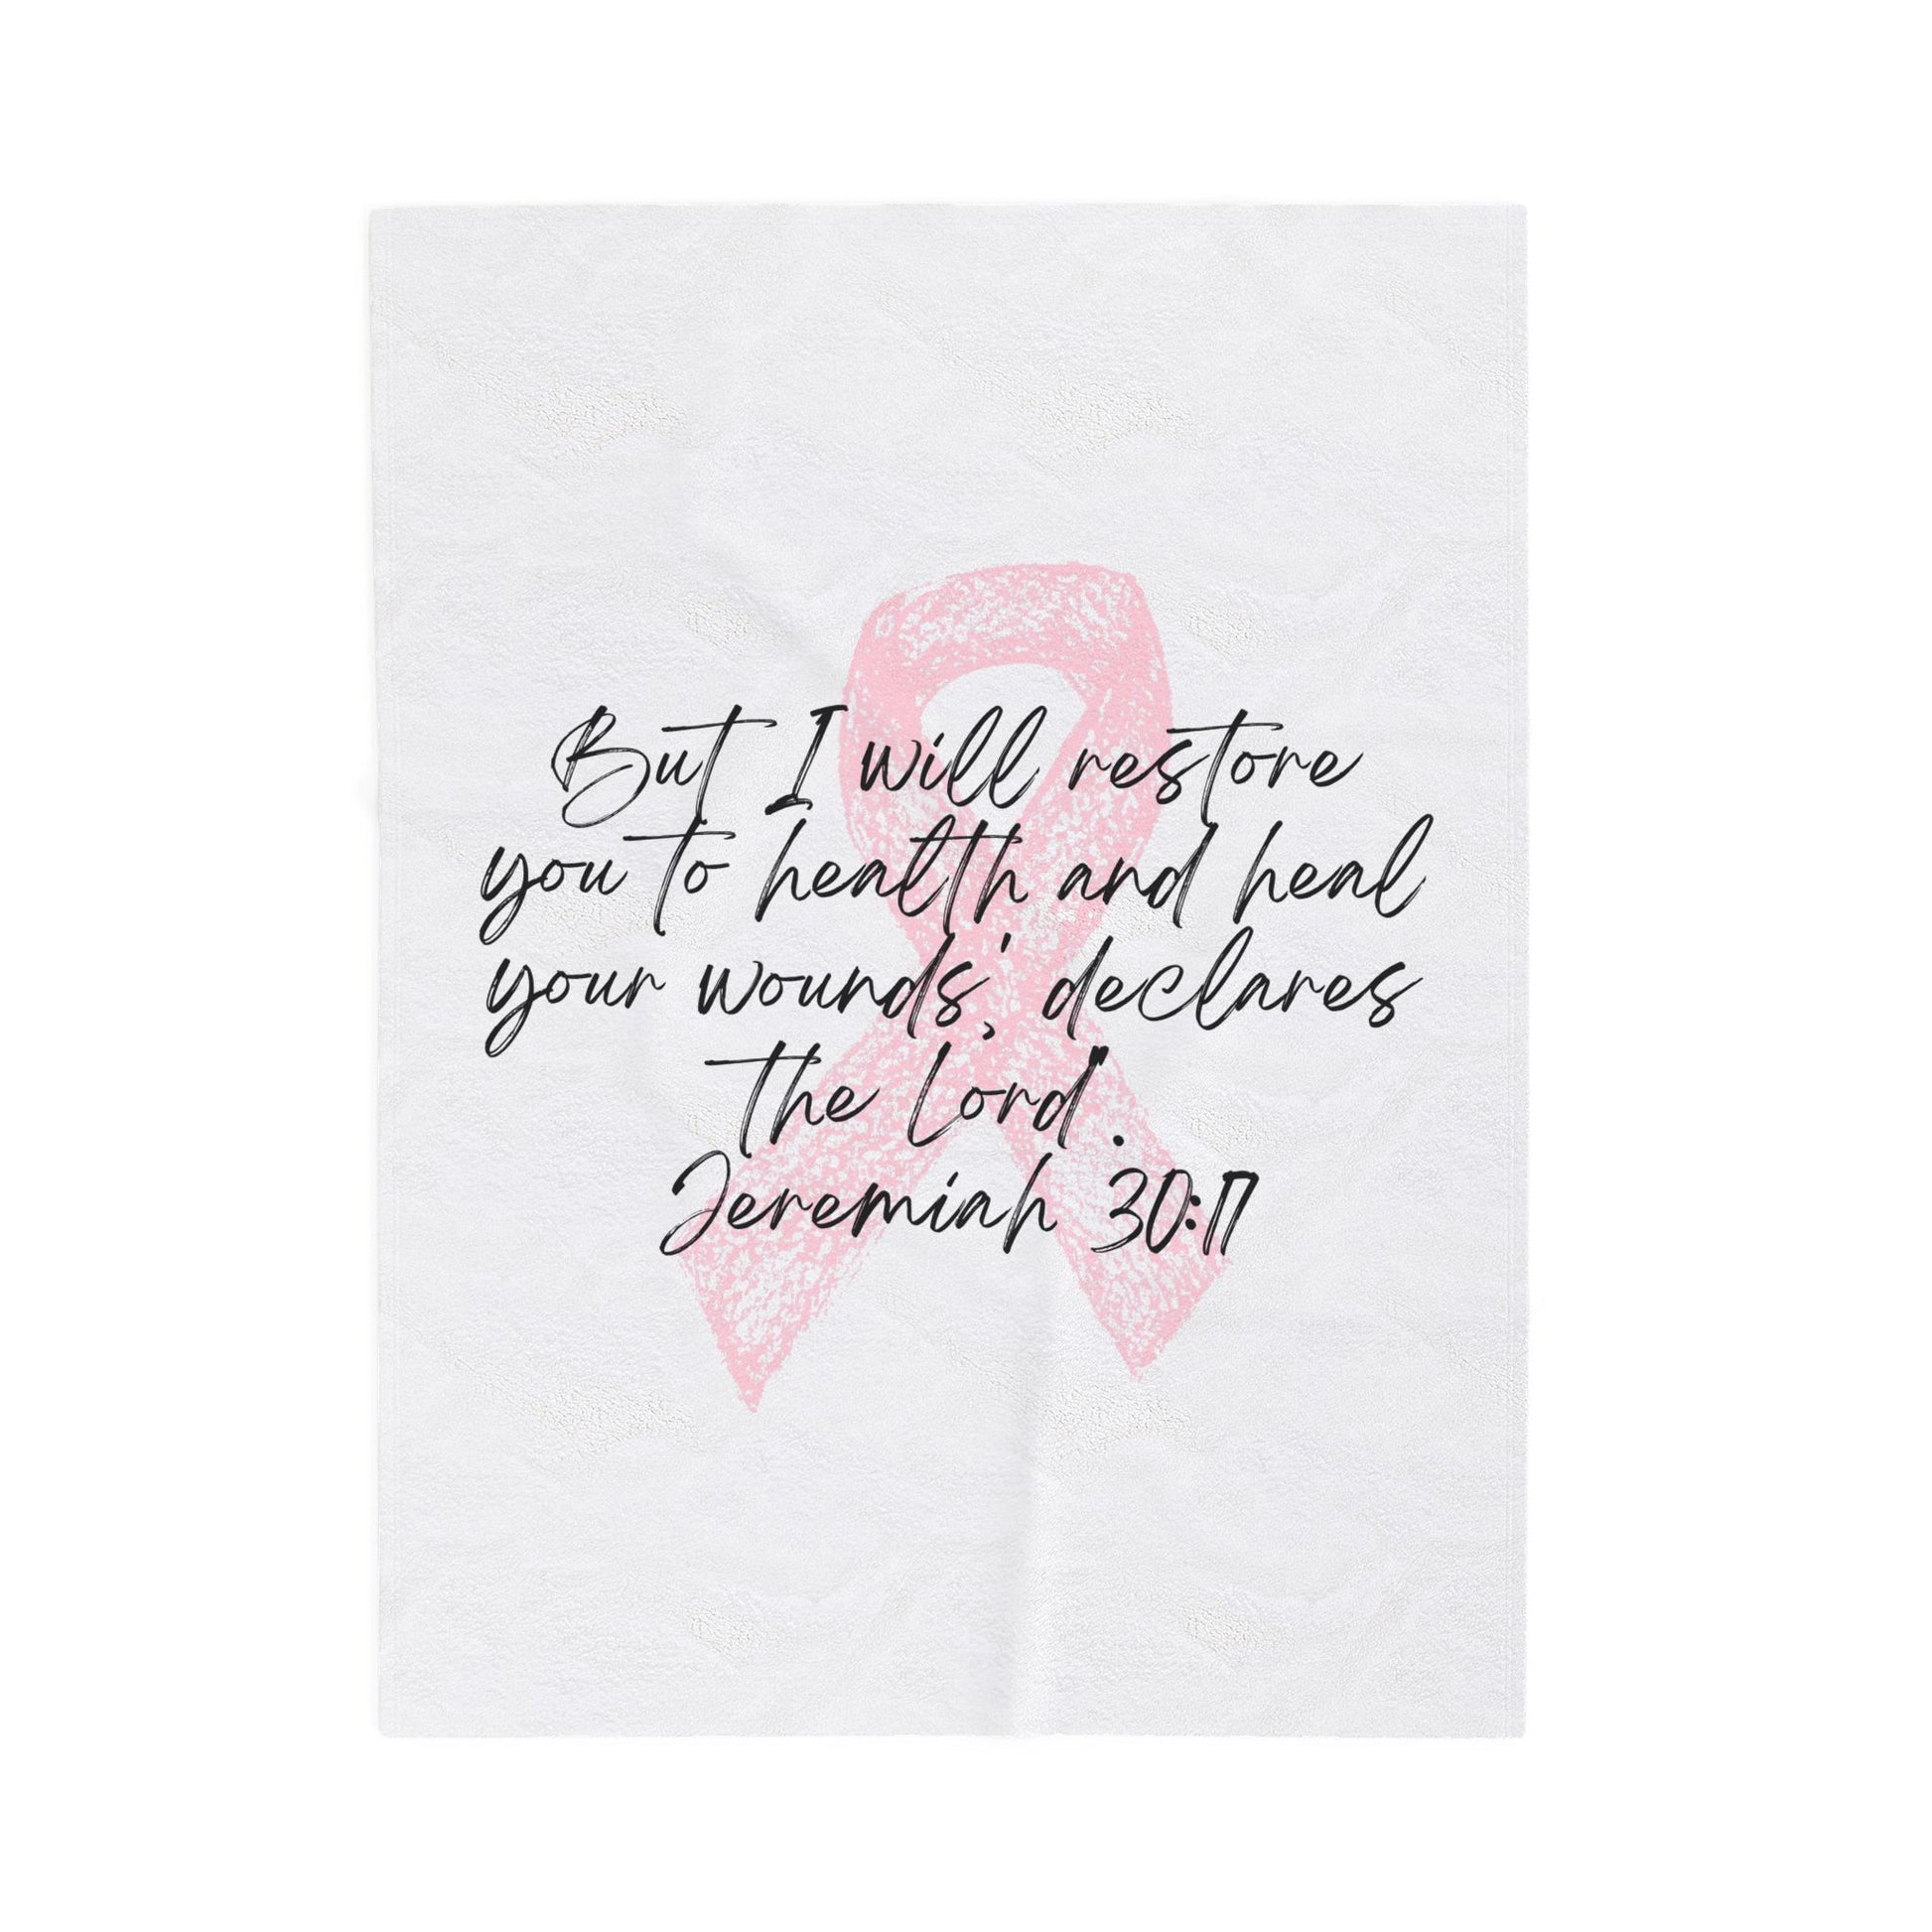 But I will restore
you to health and heal
your wounds,' declares
the Lord".
Jeremiah 30:17